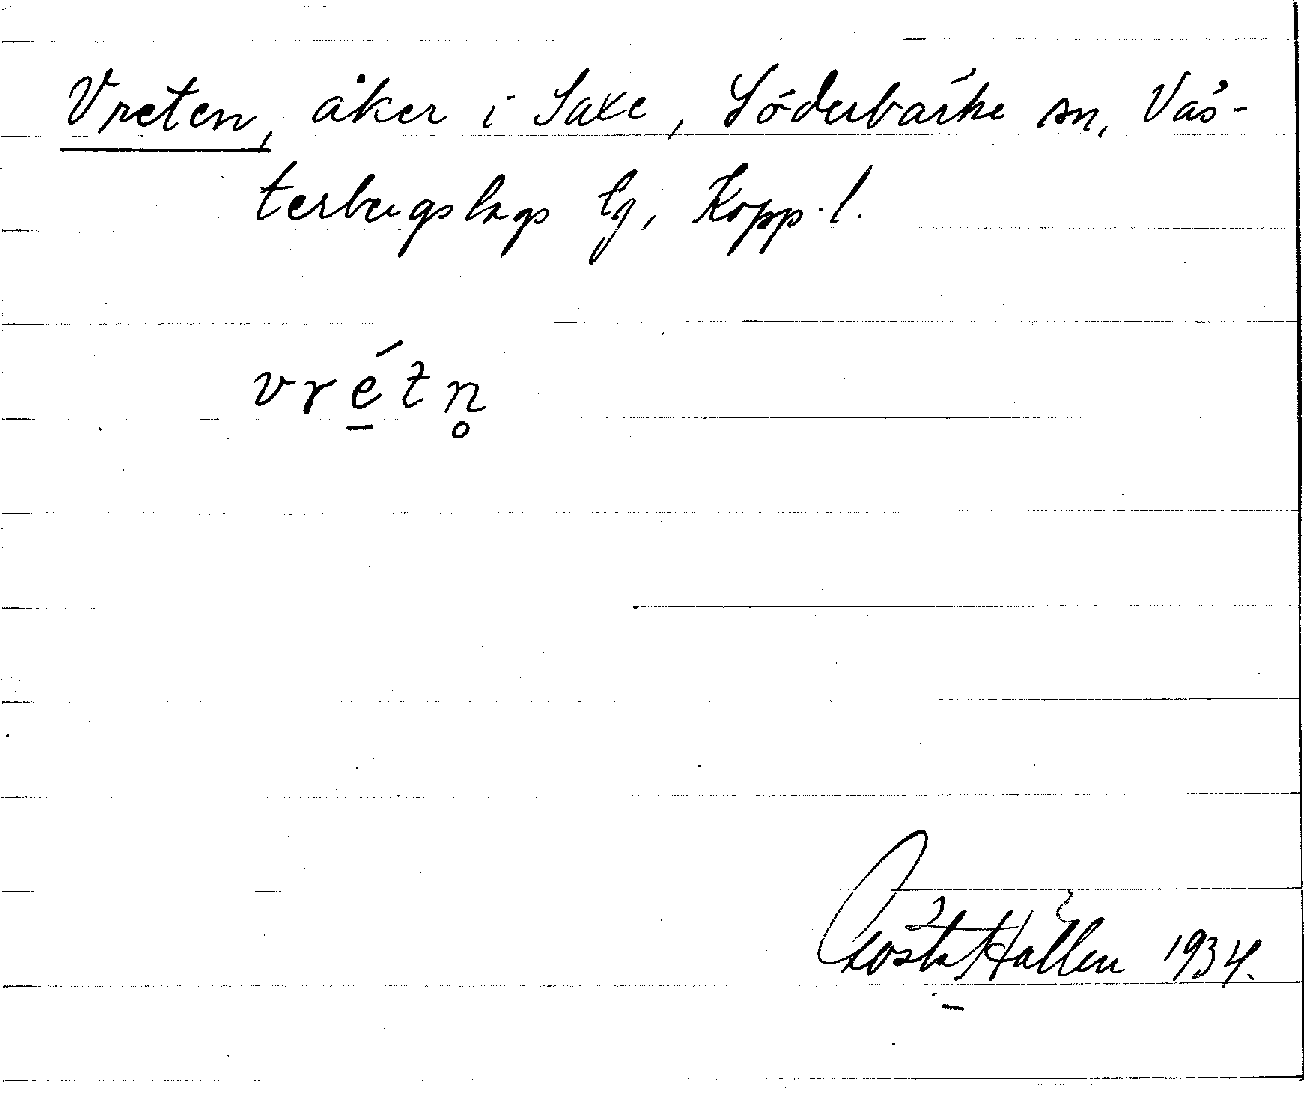 Vreten, åker i Saxe, Söderbärke sn, Väs-
terbergslags lg, Kopp. l.
vré̲tn̥
Gösta Hallén 1934.